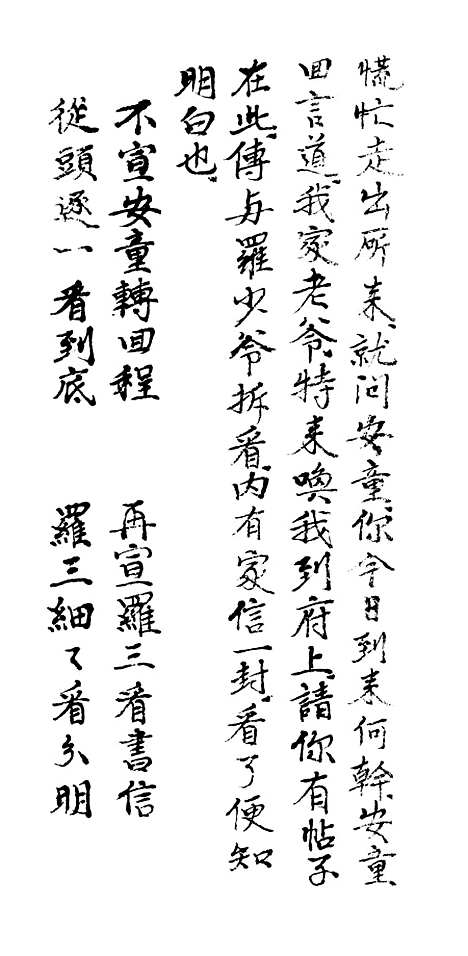 慌忙走出所来、就问安童、你今日到来何幹、安童
回言道、我家老爷、特来唤我到府上、請你有帖子
在此、傳与羅少爷拆看、内有家信一封、看了便知
明白也、
不宣安童轉回程　再宣羅三看書信
從頭逐一看到底　羅三細々看分明